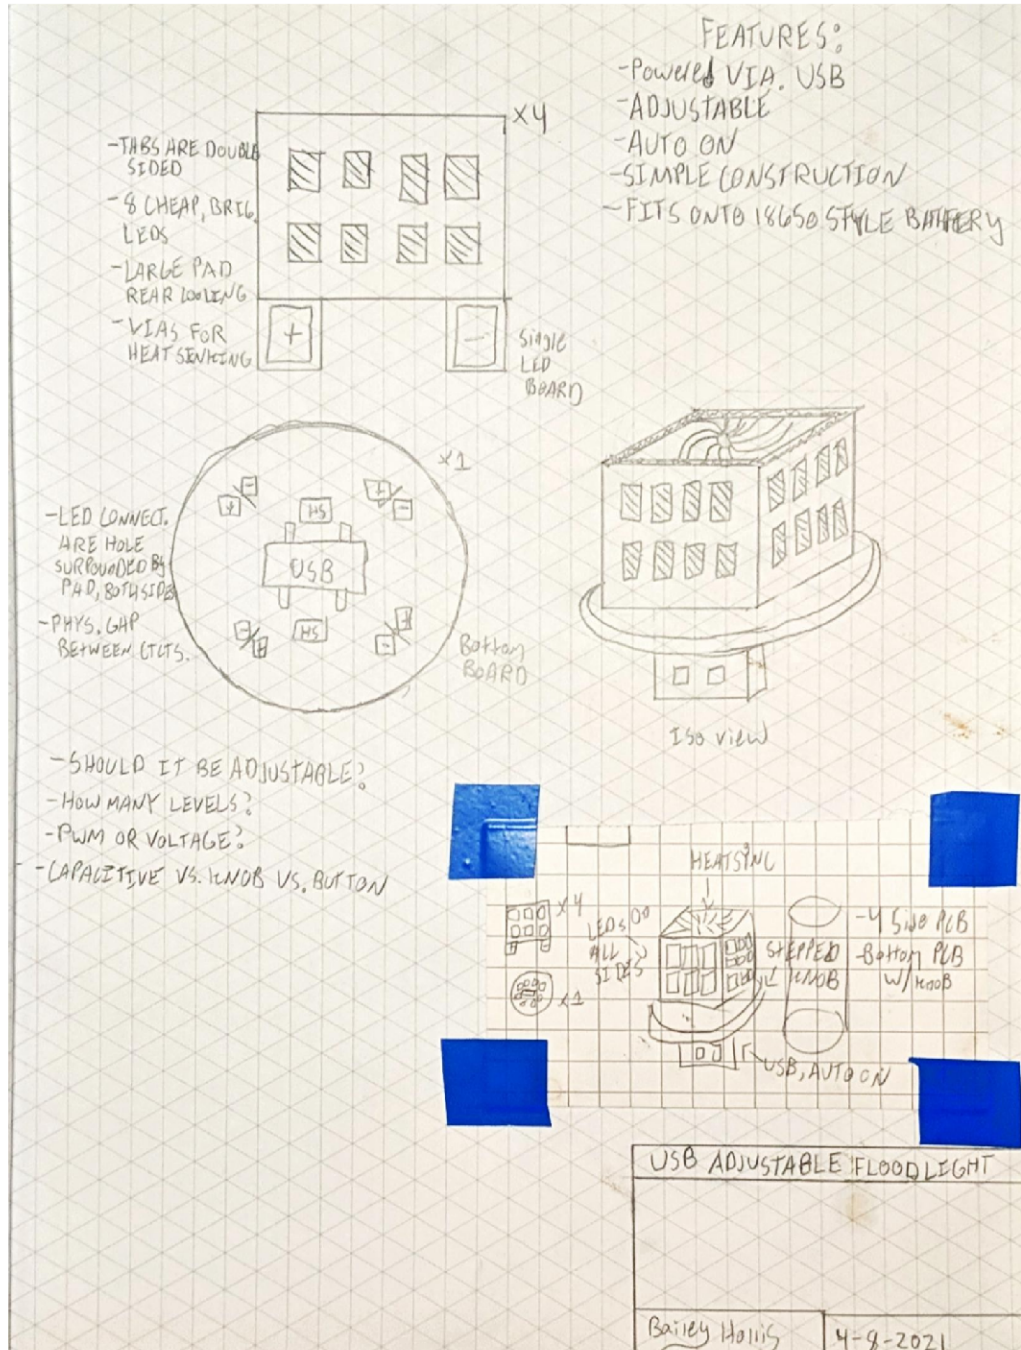 FEATURES:
-Powered VIA. USB
-ADJUSTABLE
-AUTO ON
-SIMPLE CONSTRUCTION
-FITS ONTO 18650 STYLE BATTERY
x4
-TABS ARE DOUBLE
SIDED
-8 CHEAP, BRIG.
LEDS
-LARGE PAD
REAR COOLING
-VIAS FOR
HEAT SINKING
+
-
Single
LED
BOARD
x1
-LED CONNECT.
ARE HOLE
SURROUNDED BY
PAD, BOTH SIDES
-PHYS. GAP
BETWEEN CTCTS.
+ -
HS
+ -
USB
- +
HS
- +
Bottom
BOARD
Iso view
-SHOULD IT BE ADJUSTABLE?
-HOW MANY LEVELS?
-PWM OR VOLTAGE?
-CAPACITIVE VS. KNOB VS. BUTTON
HEATSINC
x4
LEDS ON
ALL
SIDES
STEPPED
KNOB
-4 Side PCB
-Bottom PCB
W/ KNOB
x1
USB, AUTO ON
USB ADJUSTABLE FLOODLIGHT
Bailey Hollis
4-8-2021